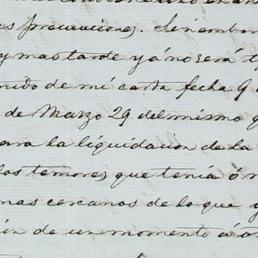 es precauciones. Sin embar
y mas tarde yá nó será t
nido de mi carta fecha 9 d
de Marzo 29 del mismo q
ara la liquidacion de la
los temores, que tenía ó r
mas cercanos de lo que y
in de un momento á ot